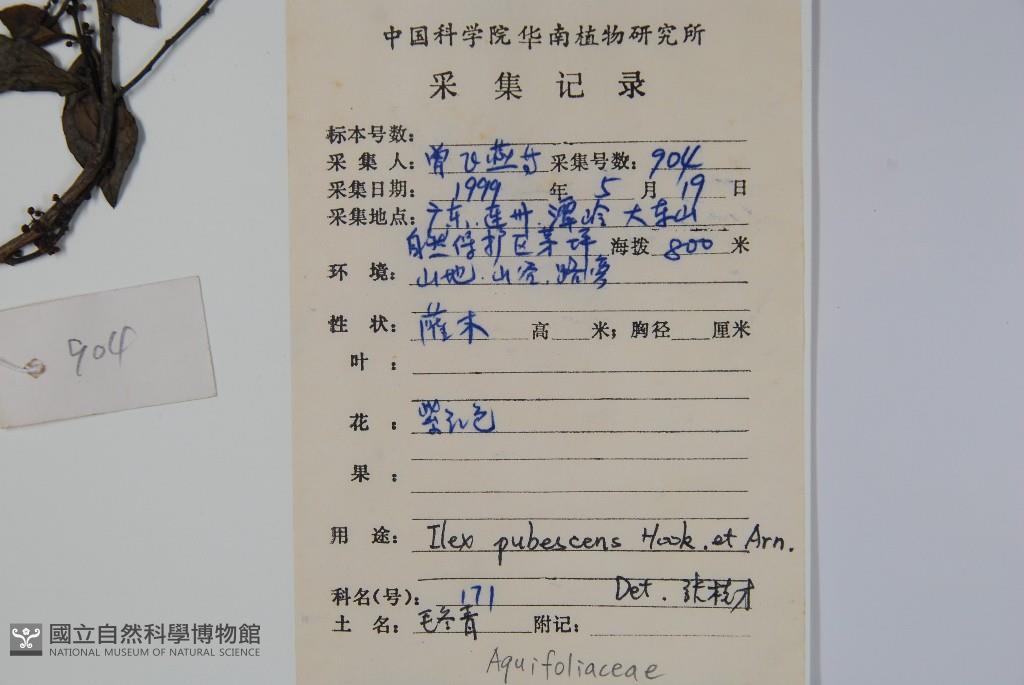 中国科学院华南植物研究所
采集记录
标本号数:
采集人: 曾飞燕等 采集号数: 904
采集日期: 1999 年 5 月 19 日
采集地点: 广东.连州.潭岭 大东山
自然保护区茅坪 海拨 800 米
环境: 山地.山谷.路旁
性状: 灌木 高 米; 胸径 厘米
叶:
花: 紫红色
果:
用途: Ilex pubescens Hook. et Arn.
Det. 张
科名(号): 171
土名: 毛冬青 附记:
Aquifoliaceae
904
國立自然科學博物館
NATIONAL MUSEUM OF NATURAL SCIENCE